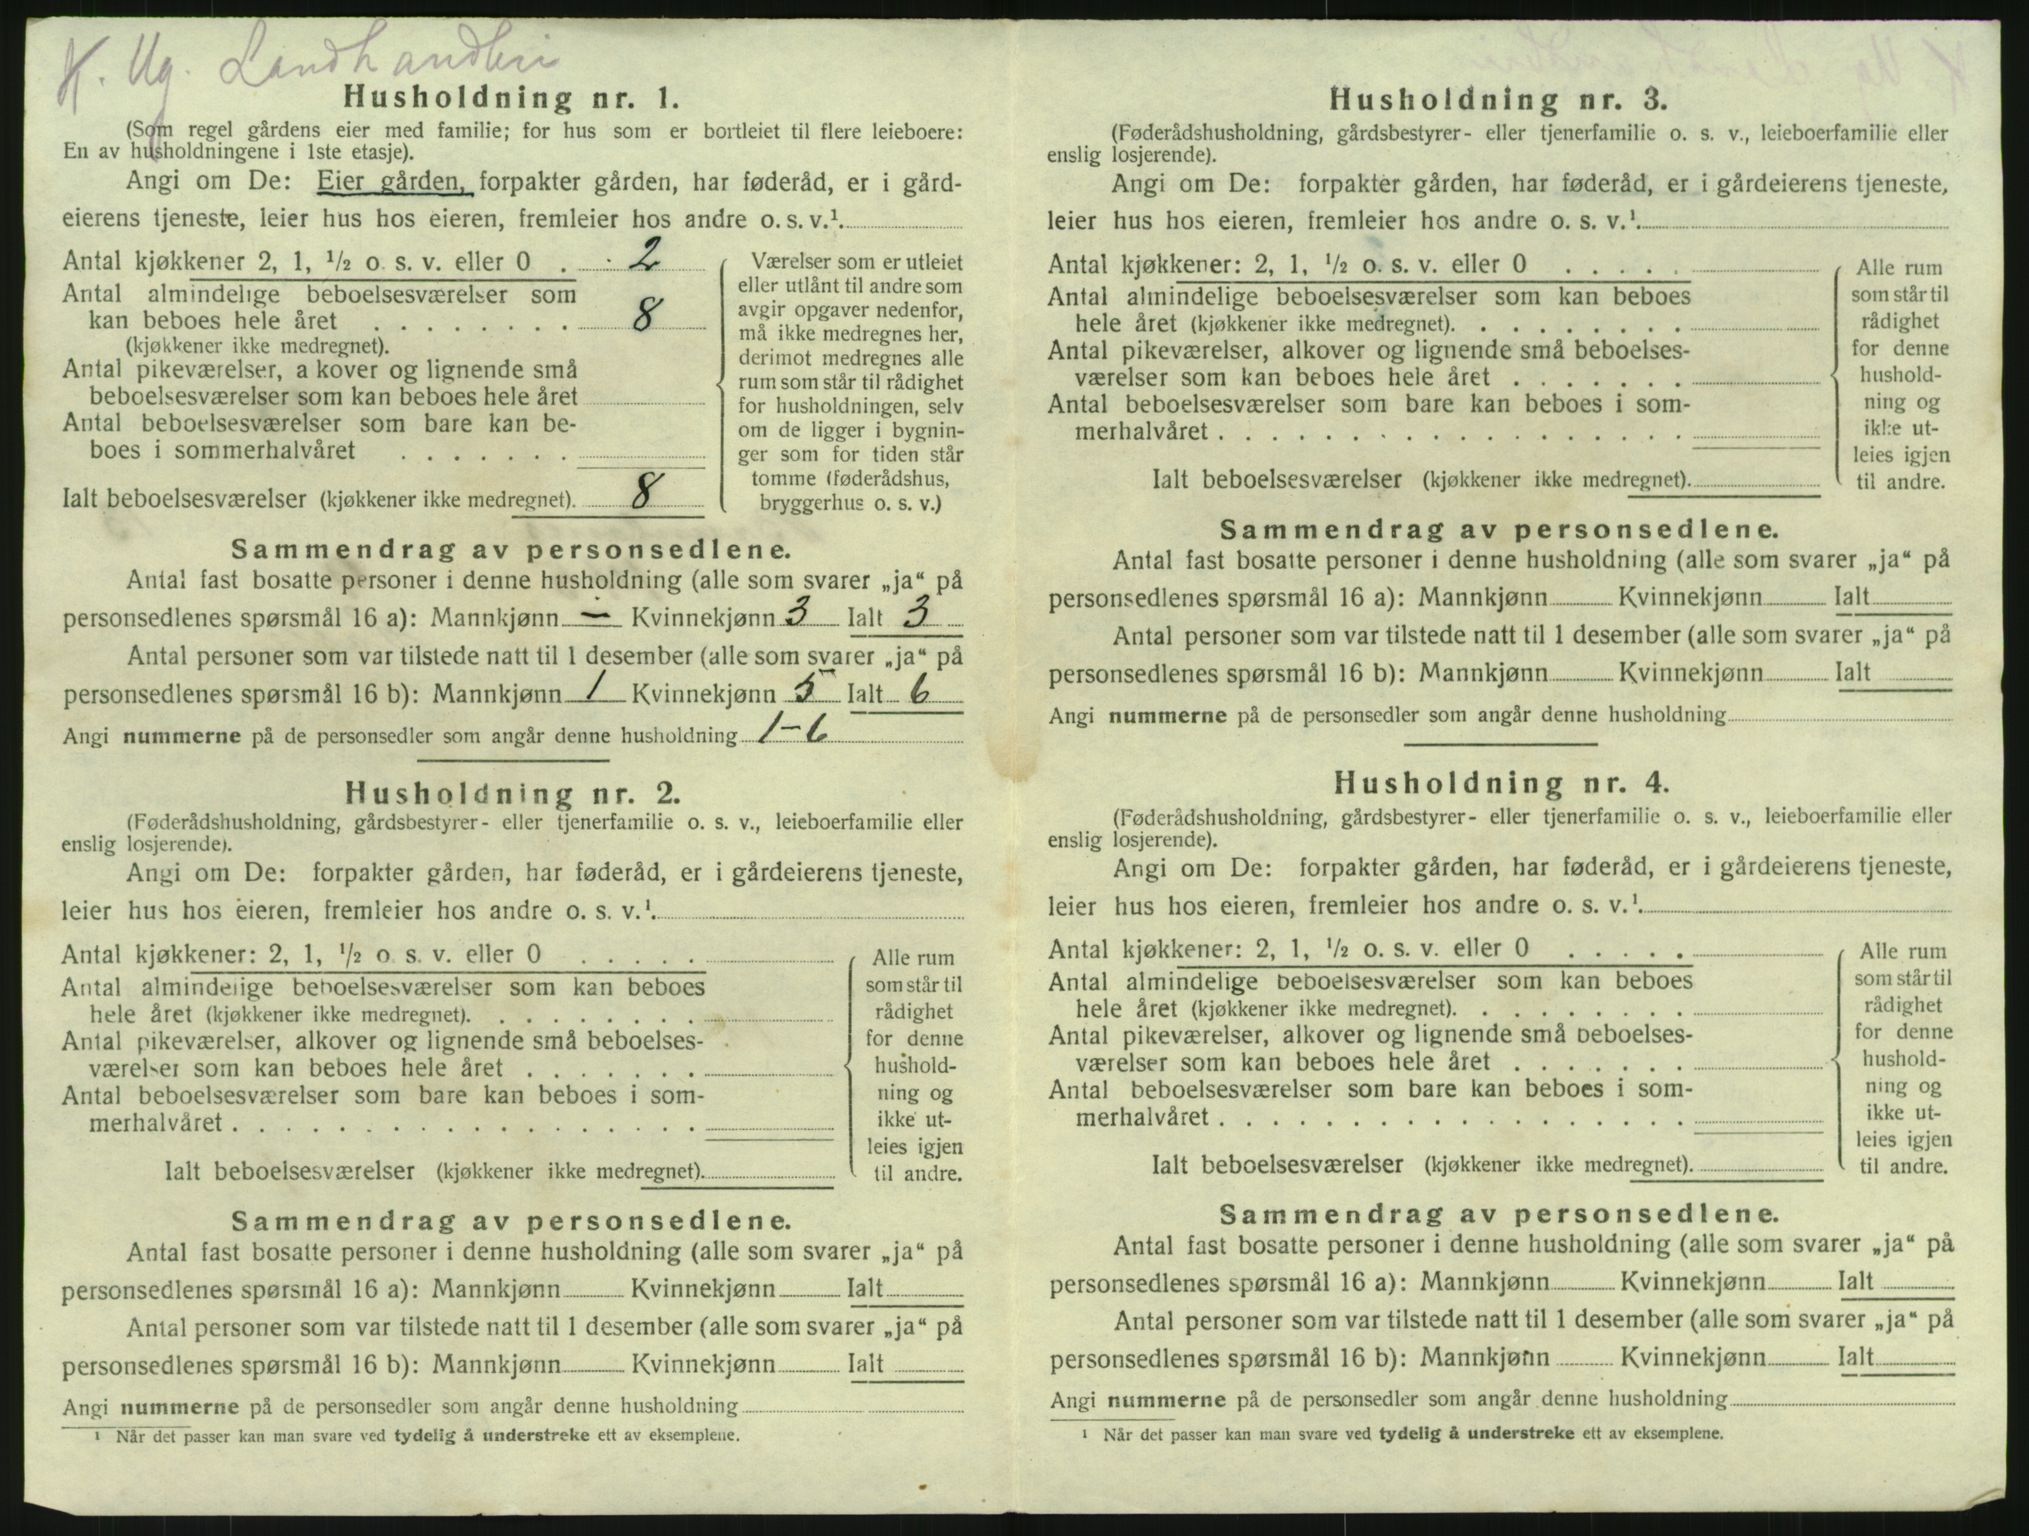 K. Ug. Landhandleri
Husholdning nr. 1.
(Som regel gårdens eier med familie; for hus som er bortleiet til flere leieboere:
En av husholdningene i 1ste etasje).
Angi om De: Eier gården, forpakter gården, har føderåd, er i gård-
eierens tjeneste, leier hus hos eieren, fremleier hos andre o. s. v.¹.
Antal kjøkkener 2, 1, ½ o. s. v. eller 0 . 2
Antal almindelige beboelsesværelser som
kan beboes hele året . . . . . . . . 8
(kjøkkener ikke medregnet).
Antal pikeværelser, a kover og lignende små
beboelsesværelser som kan beboes hele året
Antal beboelsesværelser som bare kan be-
boes i sommerhalvåret . . . . . . .
Ialt beboelsesværelser (kjøkkener ikke medregnet). 8
Værelser som er utleiet
eller utlånt til andre som
avgir opgaver nedenfor,
må ikke medregnes her,
derimot medregnes alle
rum som står til rådighet
for husholdningen, selv
om de ligger i bygnin-
ger som for tiden står
tomme (føderådshus,
bryggerhus o. s. v.)
Sammendrag av personsedlene.
Antal fast bosatte personer i denne husholdning (alle som svarer „ja“ på
personsedlenes spørsmål 16 a): Mannkjønn - Kvinnekjønn 3 Ialt 3
Antal personer som var tilstede natt til 1 desember (alle som svarer „ja“ på
personsedlenes spørsmål 16 b): Mannkjønn 1 Kvinnekjønn 5 Ialt 6
Angi nummerne på de personsedler som angår denne husholdning 1-6
Husholdning nr. 2.
(Føderådshusholdning, gårdsbestyrer- eller tjenerfamilie o. s. v., leieboerfamilie eller
enslig losjerende).
Angi om De: forpakter gården, har føderåd, er i gårdeierens tjeneste,
leier hus hos eieren, fremleier hos andre o. s. v.¹.
Antal kjøkkener: 2, 1, ½ o. s. v. eller 0 . . . . .
Antal almindelige beboelsesværelser som kan beboes
hele året (kjøkkener ikke medregnet). . . . . . . . .
Antal pikeværelser, alkover og lignende små beboelses-
værelser som kan beboes hele året . . . . . . .
Antal beboelsesværelser som bare kan beboes i som-
merhalvåret . . . . . . . . . . . . . . . . . .
Ialt beboelsesværelser (kjøkkener ikke medregnet).
Alle rum
som står til
rådighet
for denne
hushold-
ning og
ikke ut-
leies igjen
til andre.
Sammendrag av personsedlene.
Antal fast bosatte personer i denne husholdning (alle som svarer „ja“ på
personsedlenes spørsmål 16 a): Mannkjønn Kvinnekjønn Ialt
Antal personer som var tilstede natt til 1 desember (alle som svarer „ja“ på
personsedlenes spørsmål 16 b): Mannkjønn Kvinnekjønn Ialt
Angi nummerne på de personsedler som angår denne husholdning
¹ Når det passer kan man svare ved tydelig å understreke ett av eksemplene.
Husholdning nr. 3.
(Føderådshusholdning, gårdsbestyrer- eller tjenerfamilie o. s. v., leieboerfamilie eller
enslig losjerende).
Angi om De: forpakter gården, har føderåd, er i gårdeierens tjeneste,
leier hus hos eieren, fremleier hos andre o. s. v.¹.
Antal kjøkkener: 2, 1, ½ o. s. v. eller 0 . . . . .
Antal almindelige beboelsesværelser som kan beboes
hele året (kjøkkener ikke medregnet). . . . . . . . .
Antal pikeværelser, alkover og lignende små beboelses-
værelser som kan beboes hele året . . . . . . .
Antal beboelsesværelser som bare kan beboes i som-
merhalvåret . . . . . . . . . . . . . . . . . .
Ialt beboelsesværelser (kjøkkener ikke medregnet).
Alle rum
som står til
rådighet
for denne
hushold-
ning og
ikke ut-
leies igjen
til andre.
Sammendrag av personsedlene.
Antal fast bosatte personer i denne husholdning (alle som svarer „ja“ på
personsedlenes spørsmål 16 a): Mannkjønn Kvinnekjønn Ialt
Antal personer som var tilstede natt til 1 desember (alle som svarer „ja“ på
personsedlenes spørsmål 16 b): Mannkjønn Kvinnekjønn Ialt
Angi nummerne på de personsedler som angår denne husholdning
Husholdning nr. 4.
(Føderådshusholdning, gårdsbestyrer- eller tjenerfamilie o. s. v., leieboerfamilie eller
enslig losjerende).
Angi om De: forpakter gården, har føderåd, er i gårdeierens tjeneste,
leier hus hos eieren, fremleier hos andre o. s. v.¹.
Antal kjøkkener: 2, 1, ½ o. s. v. eller 0 . . . . .
Antal almindelige beboelsesværelser som kan beboes
hele året (kjøkkener ikke medregnet). . . . . . . . .
Antal pikeværelser, alkover og lignende små beboelses-
værelser som kan beboes hele året . . . . . . .
Antal beboelsesværelser som bare kan beboes i som-
merhalvåret . . . . . . . . . . . . . . . . . .
Ialt beboelsesværelser (kjøkkener ikke medregnet).
Alle rum
som står til
rådighet
for denne
hushold-
ning og
ikke ut-
leies igjen
til andre.
Sammendrag av personsedlene.
Antal fast bosatte personer i denne husholdning (alle som svarer „ja“ på
personsedlenes spørsmål 16 a): Mannkjønn Kvinnekjønn Ialt
Antal personer som var tilstede natt til 1 desember (alle som svarer „ja“ på
personsedlenes spørsmål 16 b): Mannkjønn Kvinnekjønn Ialt
Angi nummerne på de personsedler som angår denne husholdning
¹ Når det passer kan man svare ved tydelig å understreke ett av eksemplene.